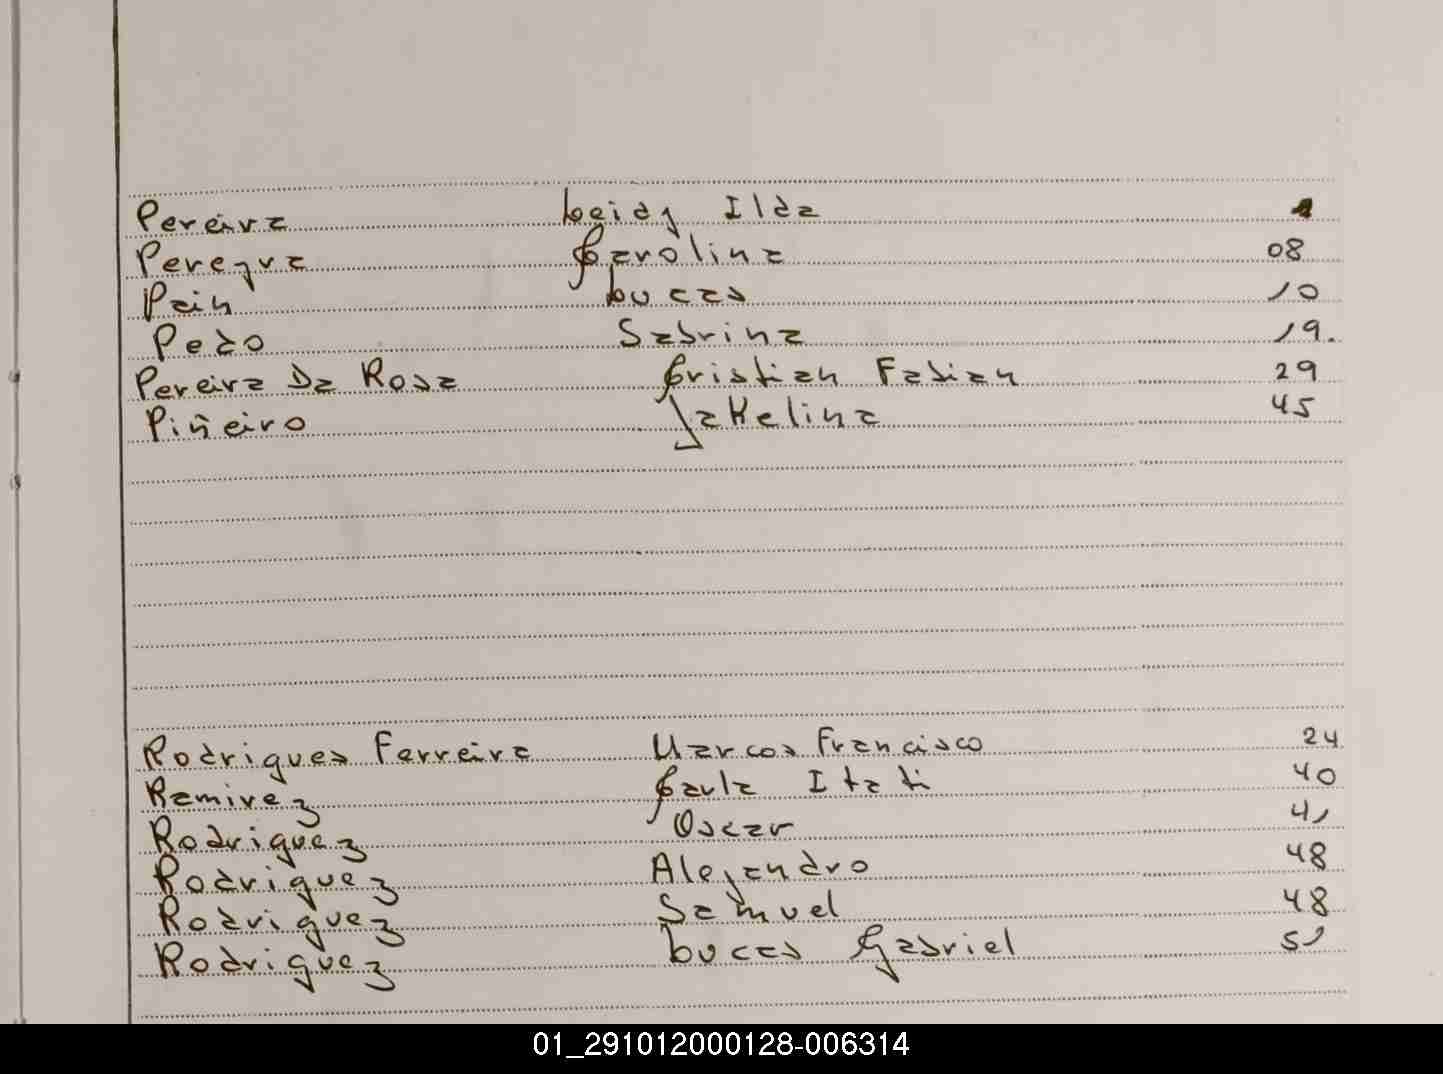 Pereira Leidy Ilda 1
Pereyra Carolina 08
Pain Lucas 10
Pedo Sabrina 19.
Pereira Da Rosa Cristian Fabian 29
Piñeiro Jakelina 45
Rodrigues Ferreira Marcos Francisco 24
Ramirez Carla Itati 40
Rodriguez Oscar 41
Rodriguez Alejandro 48
Rodriguez Samuel 48
Rodriguez Lucas Gabriel 51
01_291012000128-006314